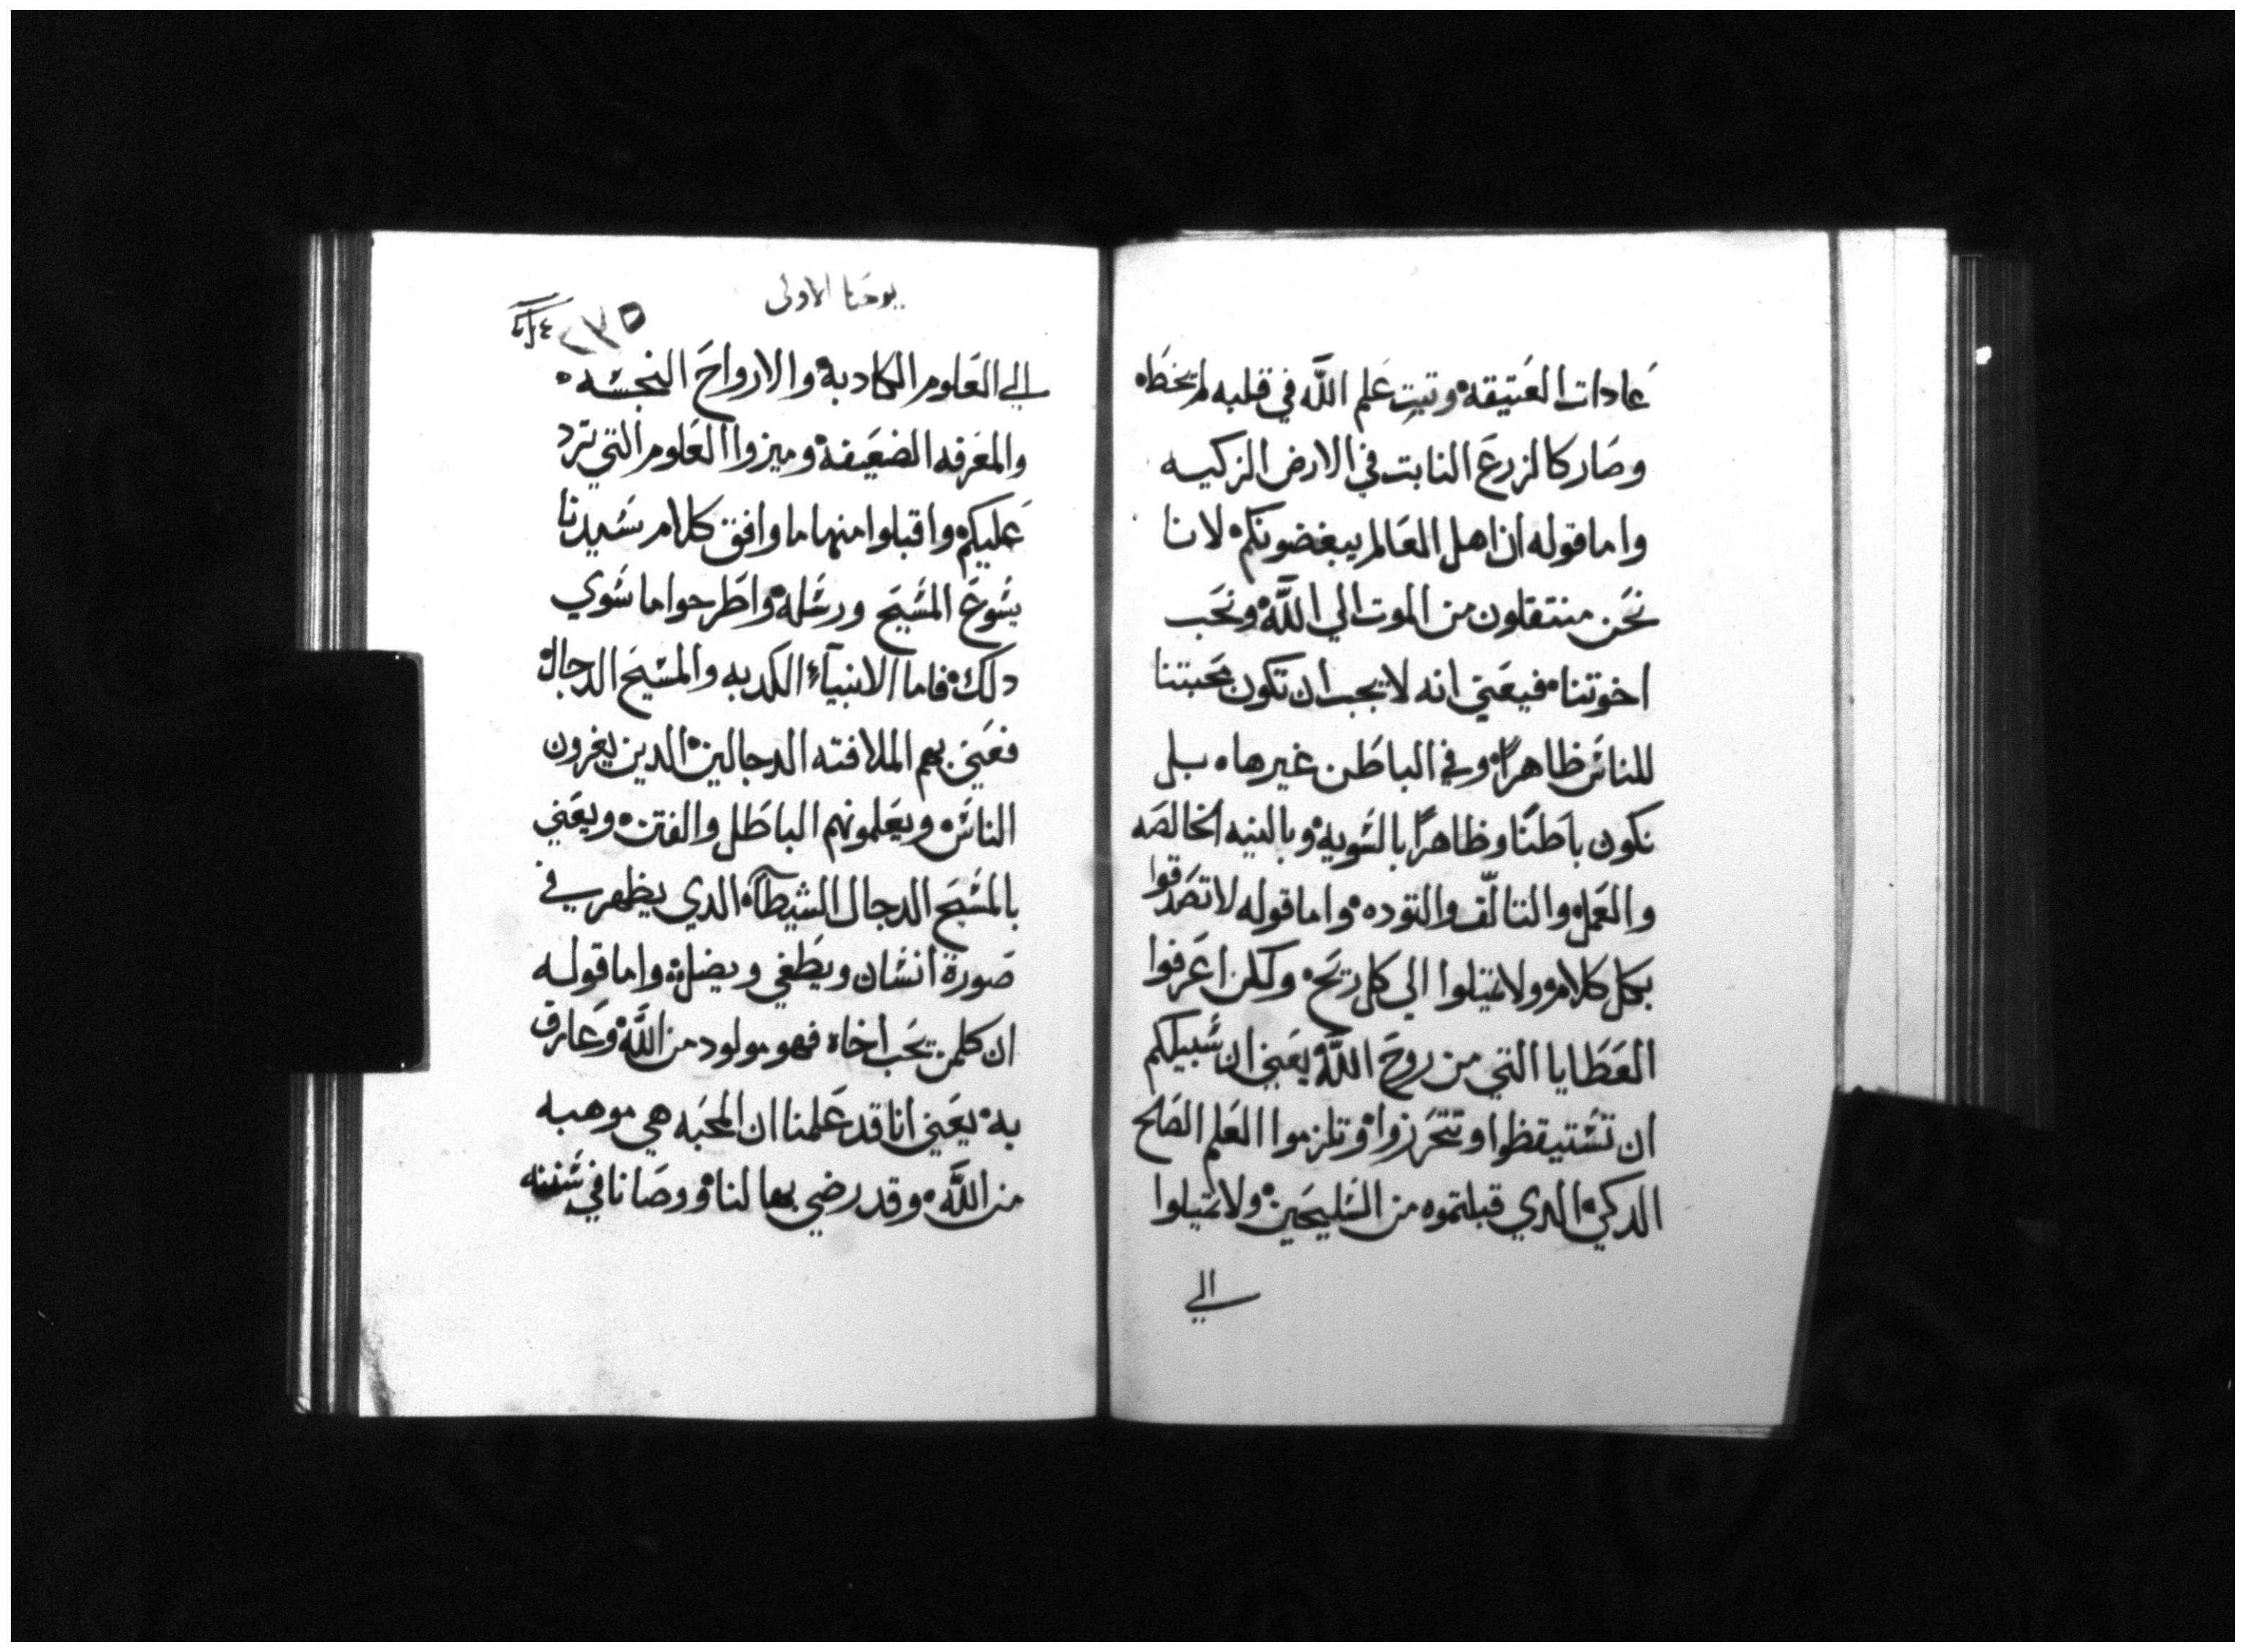 عادات العتيقه وتبت علم الله في قلبه لم يخطاه
وصار كالزرع النابت في الارض الزكيه
واما قوله ان اهل العالم يبغضونكم لانا
نحن منتقلون من الموت الي الله ونحب
اخوتنا فيعني انه لا يجب ان تكون محبتنا
للناس ظاهرًا وفي الباطن غيرها بل
نكون باطنًا وظاهرًا بالسويه وبالنيه الخالصه
والعمل والتالّف والتوده واما قوله لا تصدقوا
بكل كلام ولا تميلوا الي كل ريح ولكن اعرفوا
العطايا التي من روح الله يعني ان سبيلكم
ان تستيقظوا وتتحرزوا وتلزموا العلم الصلح
الدكي الدي قبلتموه من السليحين ولا تميلوا
الي
يوحنا الاولى
٢٧٥
الي العلوم الكادبه والارواح النجسه
والمعرفه الضعيفه وميزوا العلوم التي ترد
عليكم واقبلوا منها ما وافق كلام سيدنا
يسوع المسيح ورسله واطرحوا ما سوي
دلك فاما الانبيآء الكدبه والمسيح الدجال
فعني بهم الملافنه الدجالين الدين يغرون
الناس ويعلمونهم الباطل والفتن ويعني
بالمسيح الدجال الشيطان الدي يظهر في
صورة انسان ويطغي ويضل واما قوله
ان كلمن يحب اخاه فهو مولود من الله وعارف
به يعني انا قد علمنا ان المحبه هي موهبه
من الله وقد رضي بها لنا ووصانا في سننه